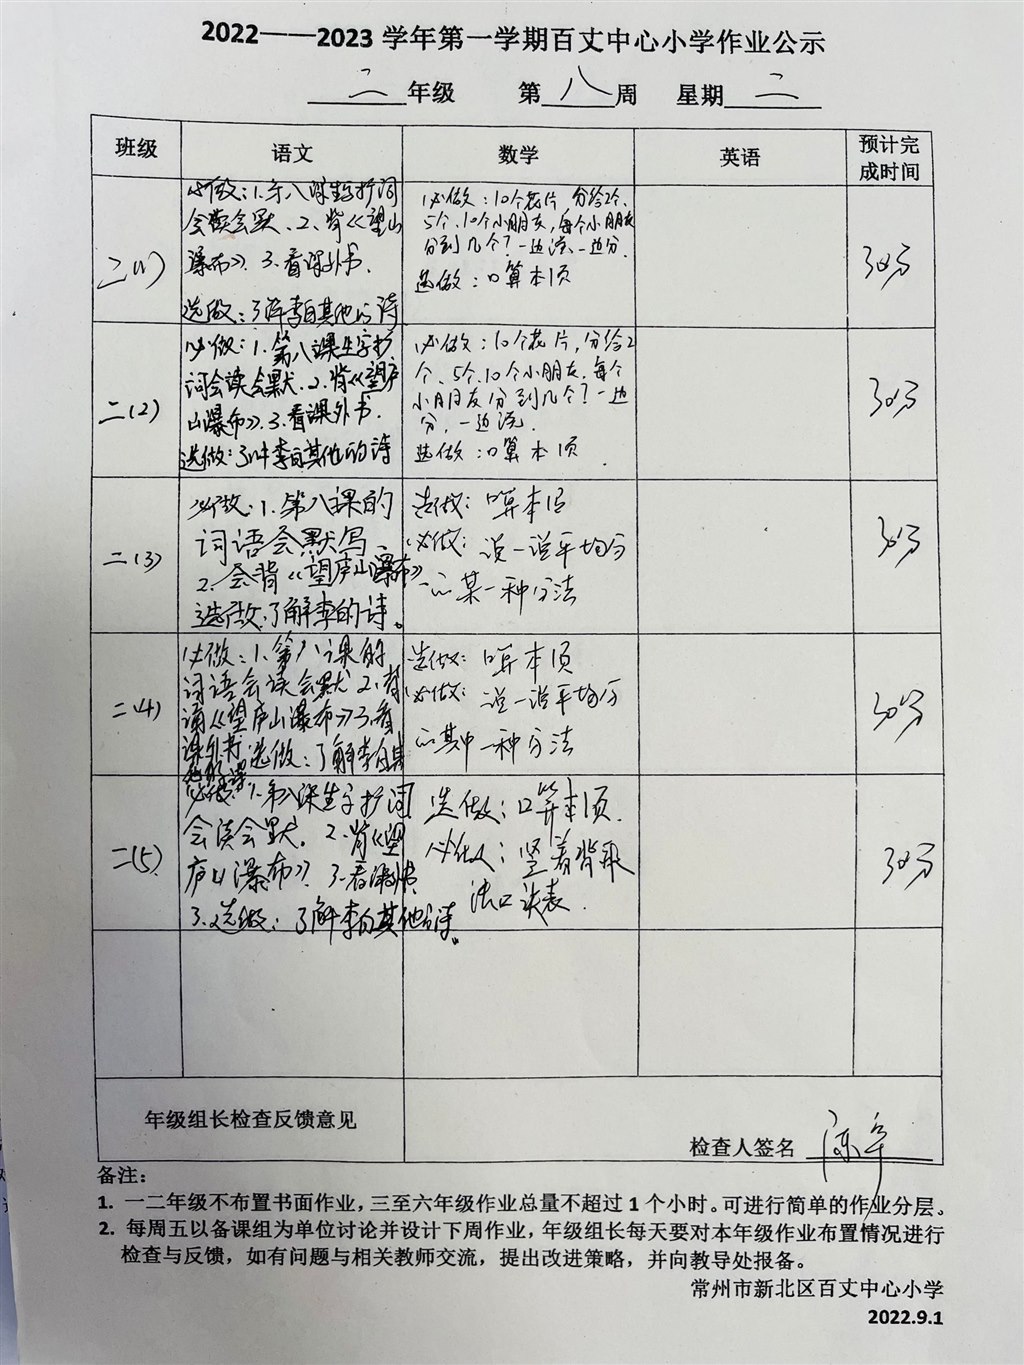 2022——2023 学年第一学期百丈中心小学作业公示
二 年级 第 八 周 星期 二
班级 语文 数学 英语 预计完成时间
二(1)
必做:1.第八课生字扩词
会读会默.2.背《望山
瀑布》.3.看课外书.
选做:了解李白其他的诗
必做:10个花片,分给2个、
5个、10个小朋友,每个小朋友
分到几个?一边说、一边分.
选做:口算本1页
30分
二(2)
必做:1.第八课生字扩
词会读会默.2.背《望庐
山瀑布》.3.看课外书.
选做:了解李白其他的诗
必做:10个花片,分给2
个、5个、10个小朋友,每个
小朋友分到几个?一边
分,一边说.
选做:口算本1页.
30分
二(3)
必做:1.第八课的
词语会默写、
2.会背《望庐山瀑布》
选做:了解李的诗。
选做:口算本1页
必做:说一说平均分
的某一种分法
30分
二(4)
必做:1.第八课的
词语会读会默2.背
诵《望庐山瀑布》3.看
课外书 选做:了解李白其
选做:口算本1页
必做:说一说平均分
的其中一种分法
30分
二(5)
必做:1.第八课生字扩词
会读会默.2.背《望
庐山瀑布》.3.看课外书
3.选做:了解李白其他的诗。
选做:口算本1页.
必做:竖着背乘
法口诀表.
30分
年级组长检查反馈意见
检查人签名
备注:
1. 一二年级不布置书面作业,三至六年级作业总量不超过 1 个小时。可进行简单的作业分层。
2. 每周五以备课组为单位讨论并设计下周作业,年级组长每天要对本年级作业布置情况进行
检查与反馈,如有问题与相关教师交流,提出改进策略,并向教导处报备。
常州市新北区百丈中心小学
2022.9.1